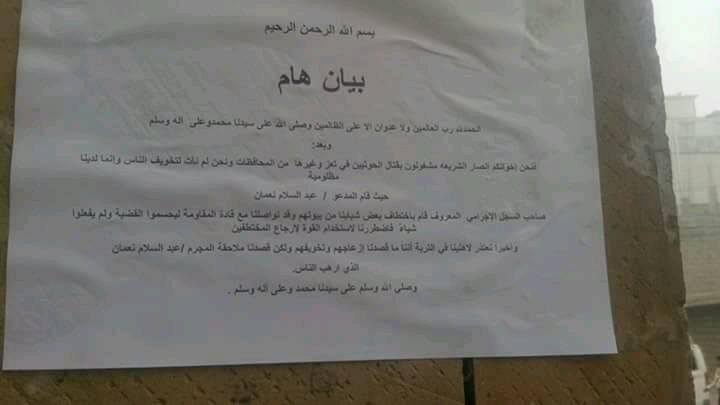 بسم الله الرحمن الرحيم
بيان هام
الحمدلله رب العالمين ولا عدوان الا على الظالمين وصلى الله على سيدنا محمدوعلى آله وسلم
وبعد:
فنحن إخوانكم انصار الشريعه مشغولون بقتال الحوثيين في تعز وغيرها من المحافظات ونحن لم نأت لتخويف الناس وانما لدينا
مظلومية
حيث قام المدعو / عبد السلام نعمان
صاحب السجل الإجرامي المعروف قام باختطاف بعض شبابنا من بيوتهم وقد تواصلنا مع قادة المقاومة ليحسموا القضية ولم يفعلوا
شياة فاضطررنا لاستخدام القوة لارجاع المختطفين
واخيرا نعتذر لاهلينا في التربة أننا ما قصدنا إزعاجهم وتخويفهم ولكن قصدنا ملاحقة المجرم /عبد السلام نعمان
الذي ارهب الناس.
وصلى الله وسلم على سيدنا محمد وعلى آله وسلم .